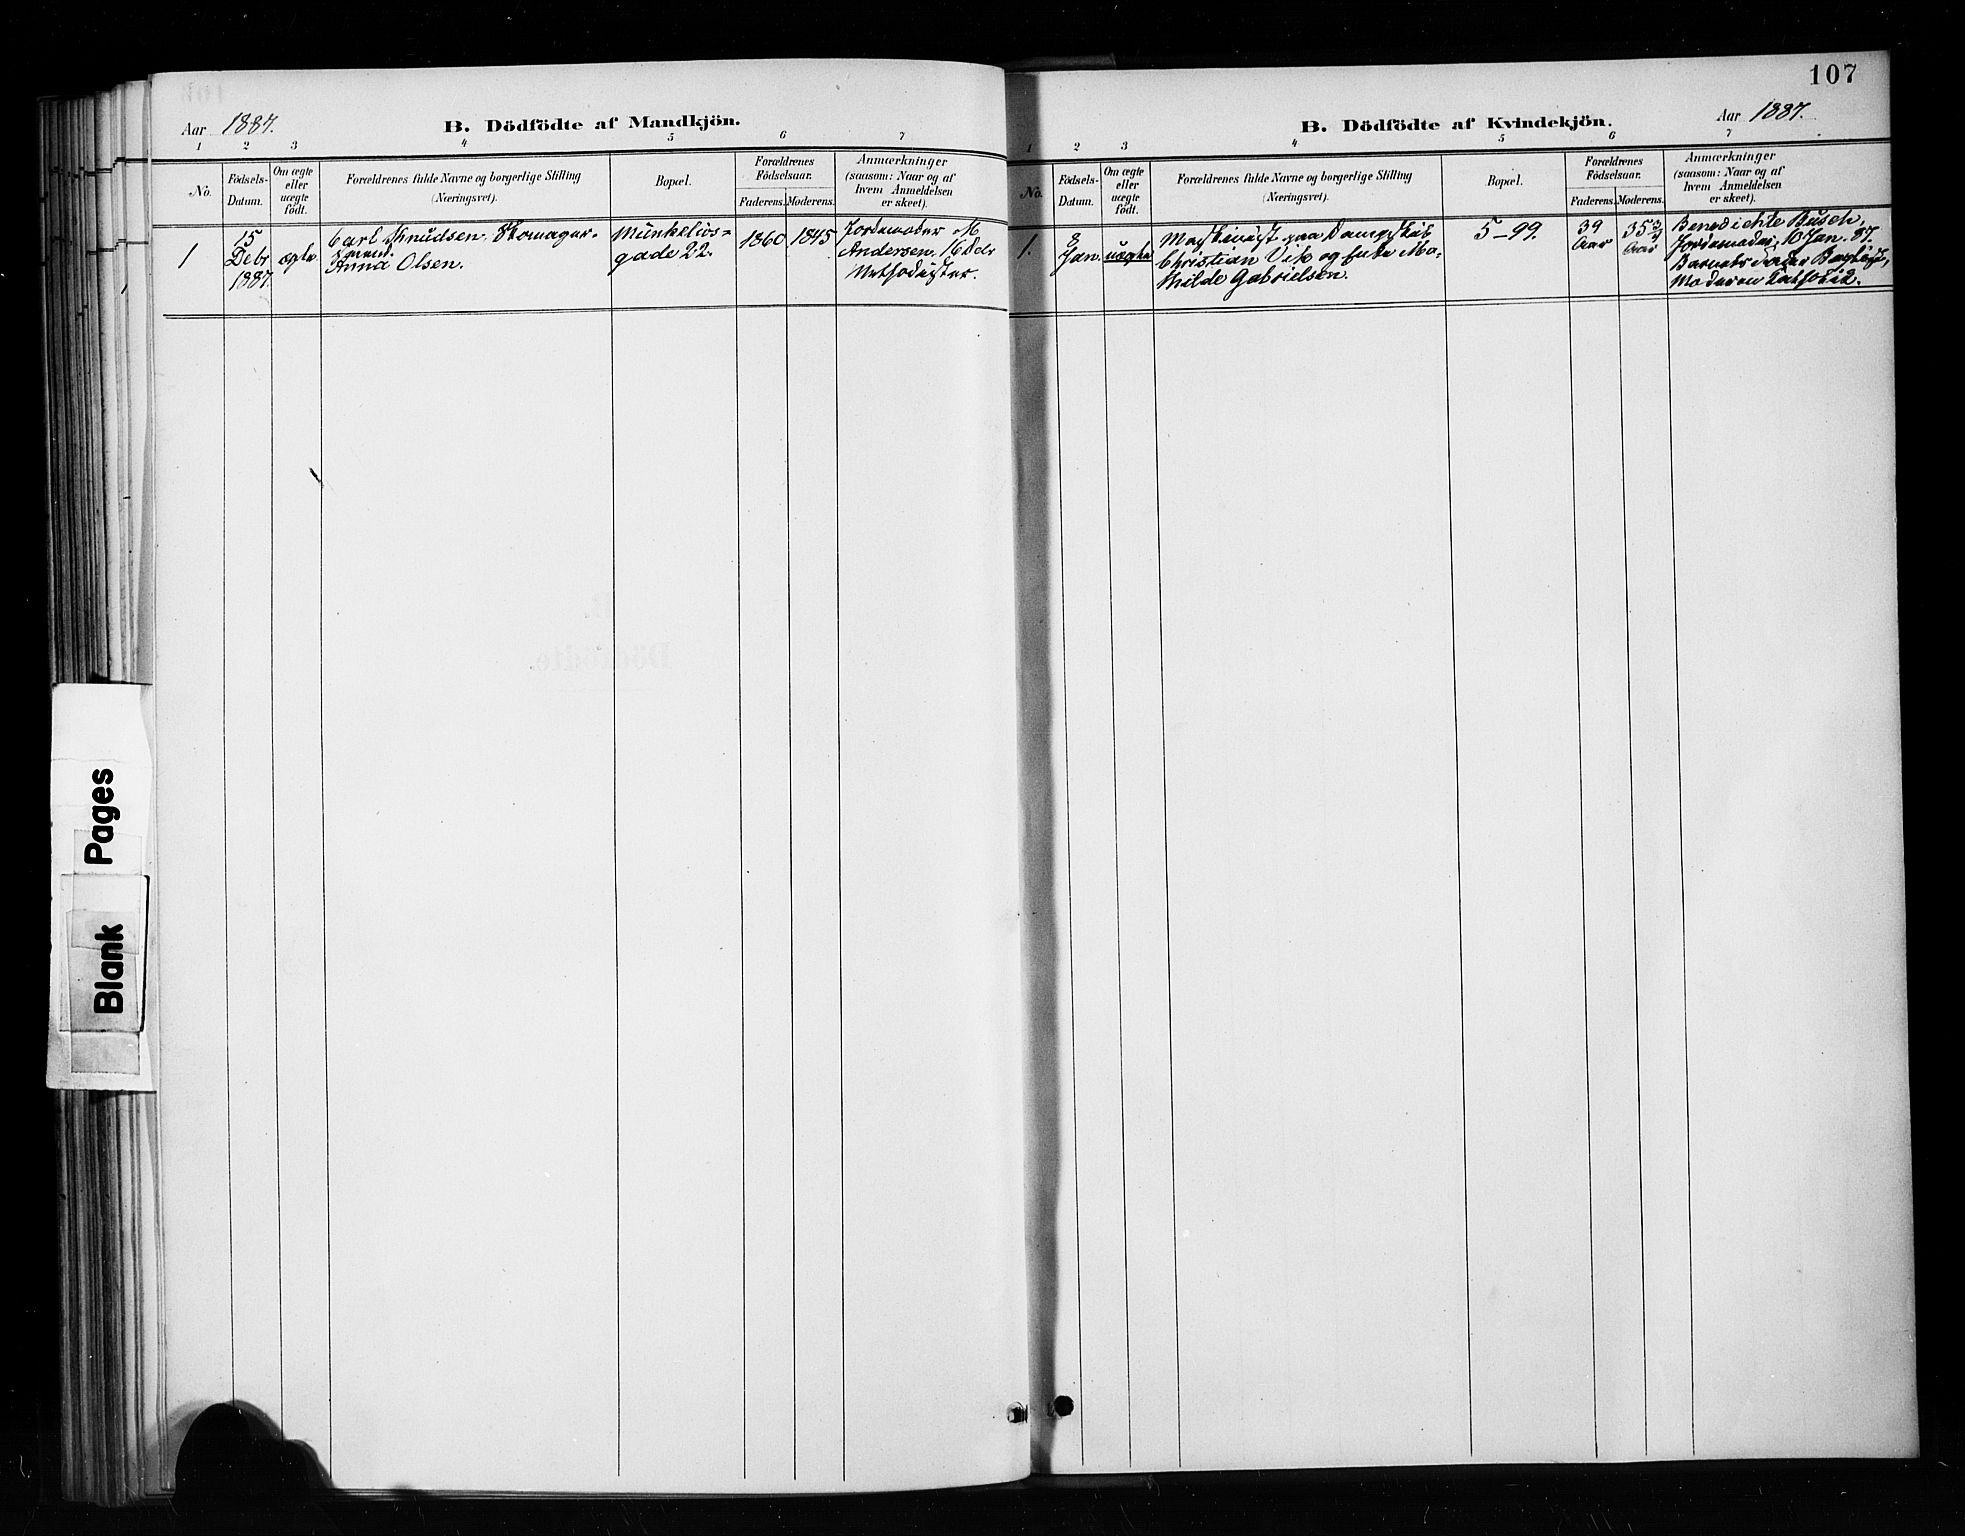 Aar 1887.
B. Dödfödte af Mandkjön.
1 2 3 4 5 6 7
No.
Födsels-
Datum.
Om ægte
eller
uægte
födt.
Forældrenes fulde Navne og borgerlige Stilling
(Næringsvei).
Bopæl.
Forældrenes
Födselsaar.
Faderens. Moderens.
Anmærkninger
(saasom: Naar og af
hvem Anmeldelsen
er skeet).
1
15
Debr
1887.
ægte
Carl Knudsen. Skomager.
Anna Olsen.
Munkelivs=
gade 22.
1860
1845
Jordemoder M
Andersen. 16 Debr
Methodister.
107
Aar 1887.
B. Dödfödte af Kvindekjön.
1 2 3 4 5 6 7
No.
Födsels-
Datum.
Om ægte
eller
uægte
födt.
Forældrenes fulde Navne og borgerlige Stilling
(Næringsvei).
Bopæl.
Forældrenes
Födselsaar.
Faderens. Moderens.
Anmærkninger
(saasom: Naar og af
hvem Anmeldelsen
er skeet).
1.
8
Jan.
uægte
Maskinist paa Dampskib
Christian Vik og Enke Ma-
thilde Gabrielsen.
5-99.
39
Aar
35
Aar
Benedichte Busch,
Jordemoder, 10 Jan. 87.
Barnets Fader
Moderen Katholik.
Blank Pages